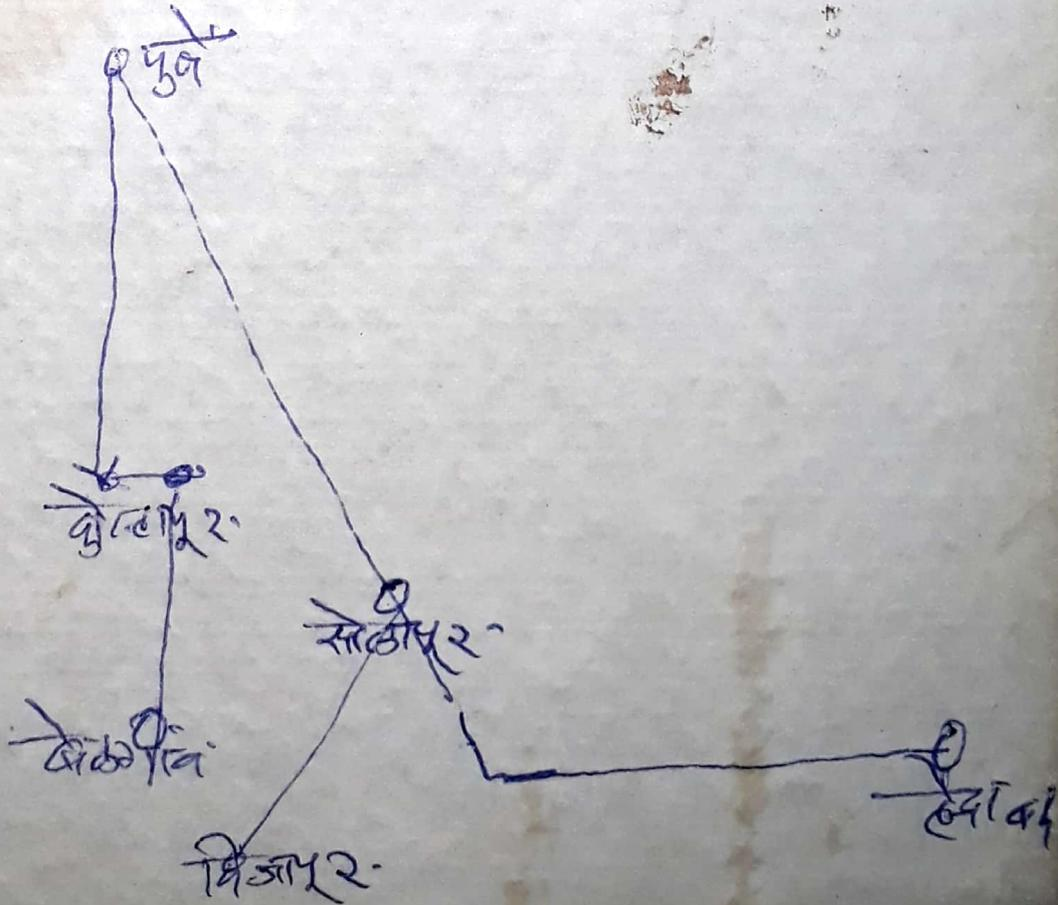 पुणे
कोल्हापूर
सोलापूर
बेळगांव
विजापूर